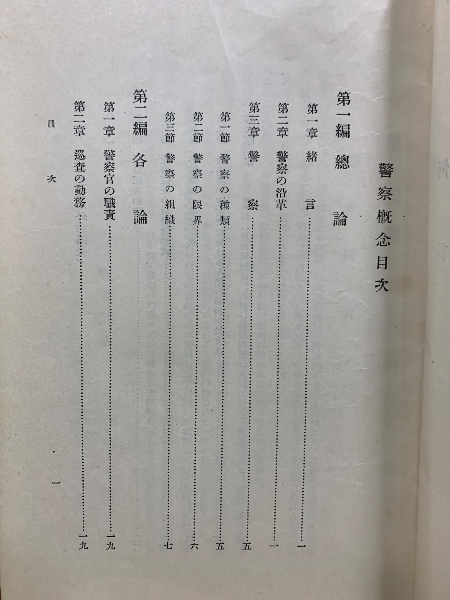 警察概念目次
第一編 總論
第一章 緒言……一
第二章 警察の沿革……一
第三章 警察……五
第一節 警察の種類……五
第二節 警察の限界……六
第三節 警察の組織……七
第二編 各論
第一章 警察官の職責……一九
第二章 巡査の勤務……一九
目次 一